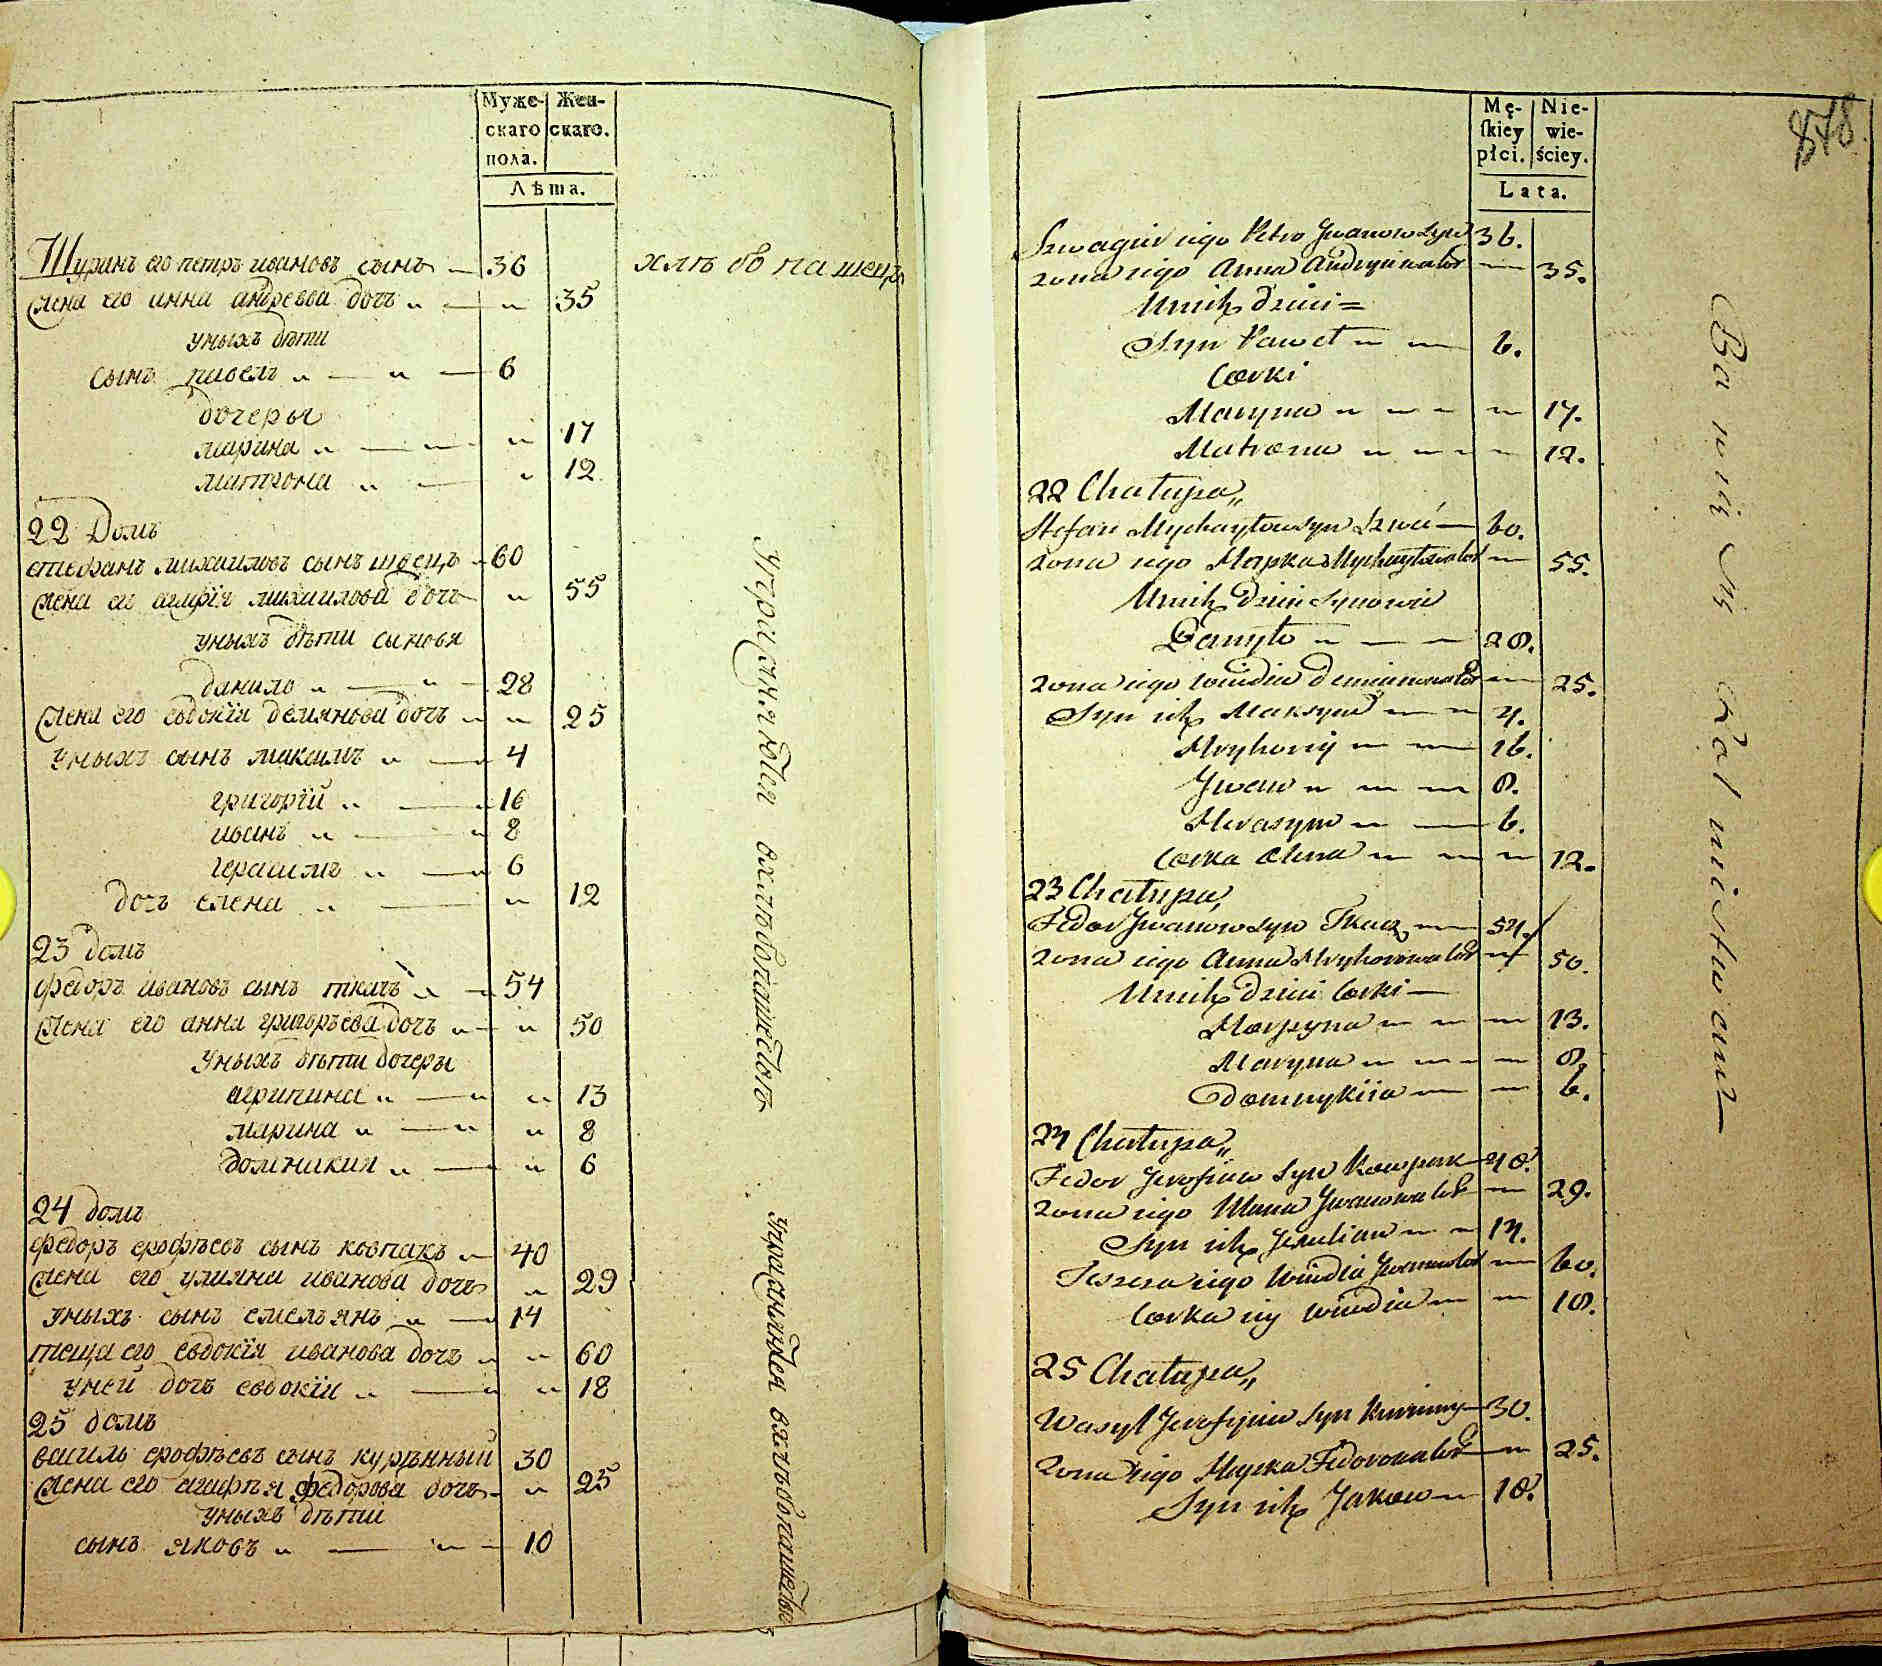 Муже- Жен-
скаго скаго.
пола.
Лѣта.
Шуринъ его петръ ивановъ сынъ — 36 хлѣбопашецъ
жена его анна андреева дочъ „ — „ 35
уныхъ дѣти
сынъ павелъ „ — „ — 6
дочеры
марина „ — „ 17
матрона „ — „ 12
22 Домъ
стефанъ михаиловъ сынъ швецъ „ 60
жена его агафія михаилова дочъ „ 55
уныхъ дѣти сыновя
данило „ — „ — 28
жена его евдокія демянова дочъ „ „ 25
уныхъ сынъ максимъ „ — 4
григорій „ — 16
иванъ „ — 8
герасимъ „ — 6
дочъ елена „ — „ 12
23 домъ
федоръ ивановъ сынъ ткачъ „ — 54
жена его анна григорьева дочъ „ — „ 50
уныхъ дѣти дочеры
агрипина „ — „ „ 13
марина „ — „ „ 8
домникия „ — „ 6
24 домъ
федоръ ерофѣевъ сынъ ковпакъ „ 40
жена его улияна иванова дочъ „ 29
уныхъ сынъ емельянъ „ — 14
теща его евдокія иванова дочъ „ „ 60
уней дочъ евдокія „ — „ 18
25 домъ
василь ерофѣевъ сынъ курѣнный 30
жена его агафья федорова дочъ „ „ 25
уныхъ дѣти
сынъ яковъ „ — „ — 10
упражняется в хлѣбопашествѣ
упражняется в хлѣбопашествѣ
Mę- Nie-
ſkiey wie-
płci. ściey.
Lata.
878
Szwagier iego Petro Jwanow syn 36.
żona iego Anna Andryiewa — 35.
U nich dzieci =
Syn Paweł „ — 6.
Corki
Maryna „ „ — „ 17.
Matrona „ „ — „ 12.
22 Chałupa„
Stefan Mychayłow syn Szwec — 60.
żona iego Hapka Mychayłowa — 55.
U nich dzieci synowie
Danyło „ — — 28.
żona iego Wiwdia Demianowa — 25.
Syn ich Maksym — „ 4.
Hryhoriy „ — 16.
Jwan „ — — 8.
Herasym „ — 6.
Corka Olena „ — „ 12.
23 Chałupa„
Fedor Jwanow syn Tkacz „ — 54.
żona iego Anna Hryhorowa — 50.
U nich dzieci Corki —
Horpyna „ — — 13.
Maryna „ — — 8.
Domnykiia — — 6.
24 Chałupa„
Fedor Jerofiiew syn Kowpak — 40.
żona iego Ulana Jwanowa — 29.
Syn ich Jemilian „ „ 14.
Teszcza iego Wiwdia Jwanowa — 60.
Corka iey Wiwdia — — 18.
25 Chałupa„
Wasyl Jerofiiew syn Kurinny — 30.
żona iego Hapka Fedorowa — 25.
Syn ich Jakow — 10.
Bawią się rolnictwem —